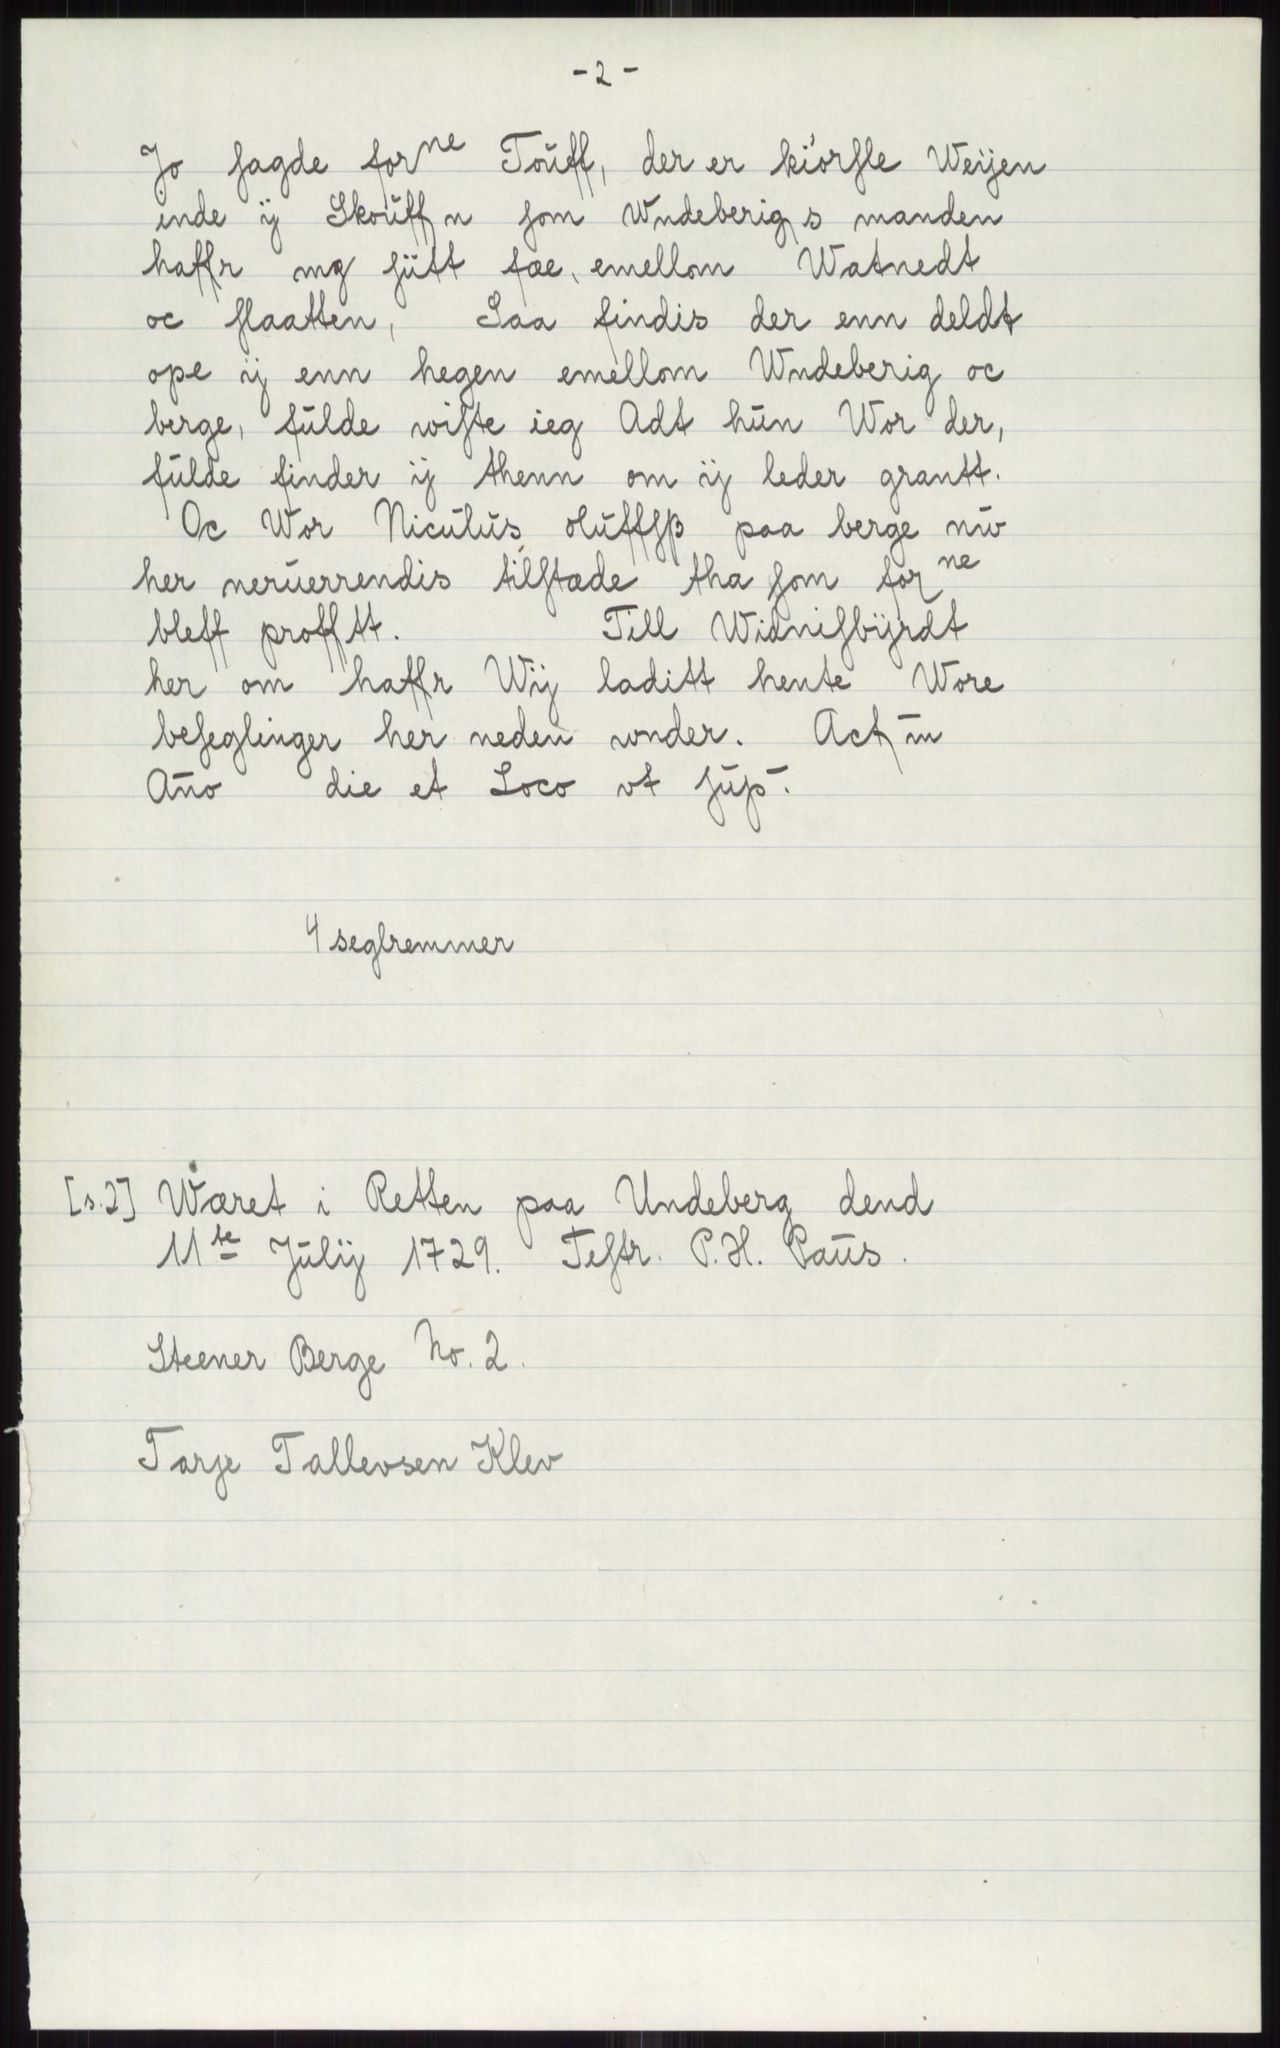 - 2 -
Jo sagde forne Touff, der er kiörsle Weijen
ende ij Skouffn som Wndeberigs manden
haffr mg siitt fæe, emellom Watnedt
oc slaatten, Saa findis der enn deldt
ope ij enn hegen emellom Wndeberig oc
berge, fulde wiste ieg Adt hun Wor der,
fulde finder ij thenn om ij leder grantt.
Oc Wor Niculus oluffsß paa berge nuv
her neruerrendis tilstæde tha som forne
bleff profftt. Till Widnisbijrdt
her om haffr Wij laditt hente Wore
beseglinger her neden wnder. Actm̄
An̄o die et Loco vt sup̄.
4 seglremmer
[s.2] Wæret i Retten paa Undeberg dend
11te Julij 1729. Testr. P. H. Paus.
Steener Berge No. 2.
Tarje Tallevsen Klev